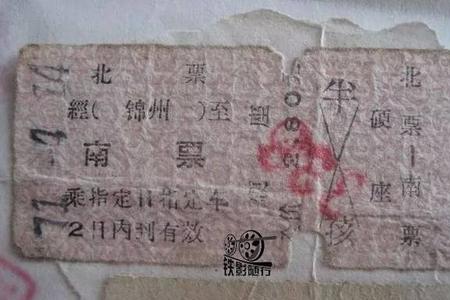 北 票
經( 锦州 )至
南 票
乘指定日指定车
2日内到有效
座
2.80
半
孩
硬座
北票—南票
铁影随行